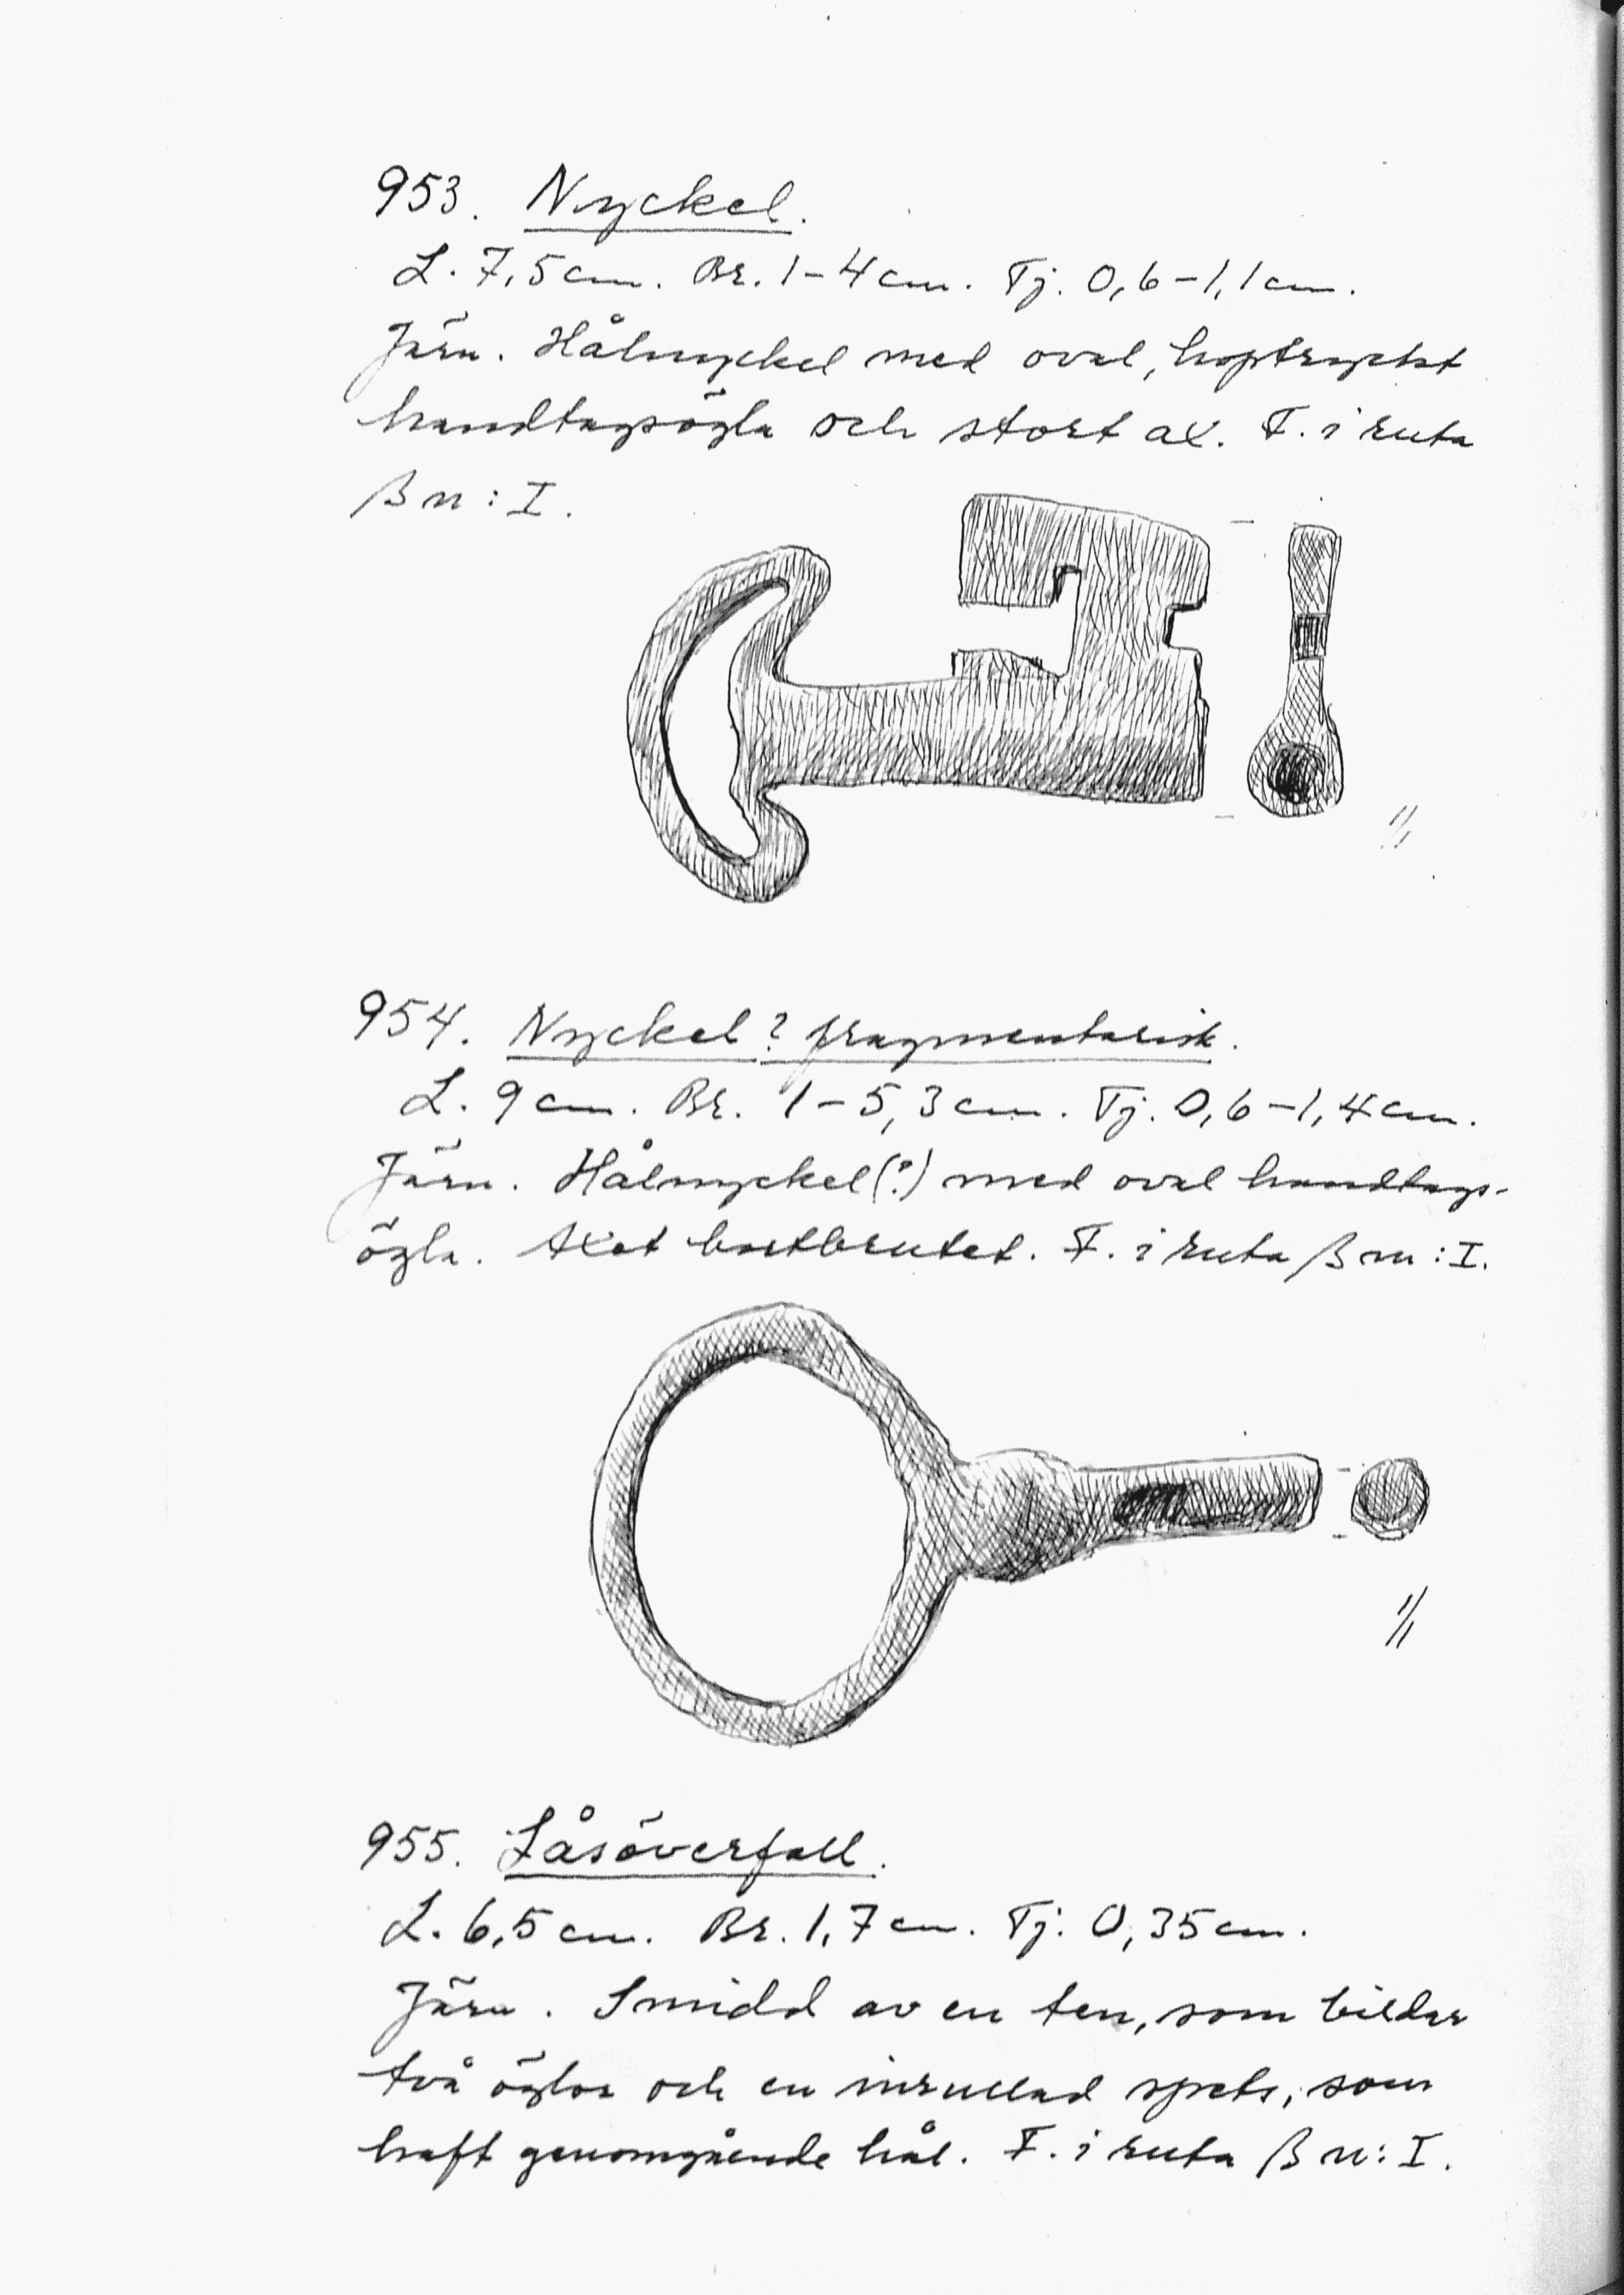 953. Nyckel.
L. 7,5 cm. Br. 1-4 cm. Tj. 0,6-1,1 cm.
Järn. Hålnyckel med oval, hoptryckt
handtagsögla och stort ax. F. i ruta
β n : I.
1/1
954. Nyckel? fragmentarisk.
L. 9 cm. Br. 1-5,3 cm. Tj. 0,6-1,4 cm.
Järn. Hålnyckel(?) med oval handtags-
ögla. Axet bortbrutet. F. i ruta β m : I.
1/1
955. Låsöverfall.
L. 6,5 cm. Br. 1,7 cm. Tj: 0,35 cm.
Järn. Smidd av en ten, som bildar
två öglor och en inrullad spets, som
haft genomgående hål. F. i ruta β n : I.